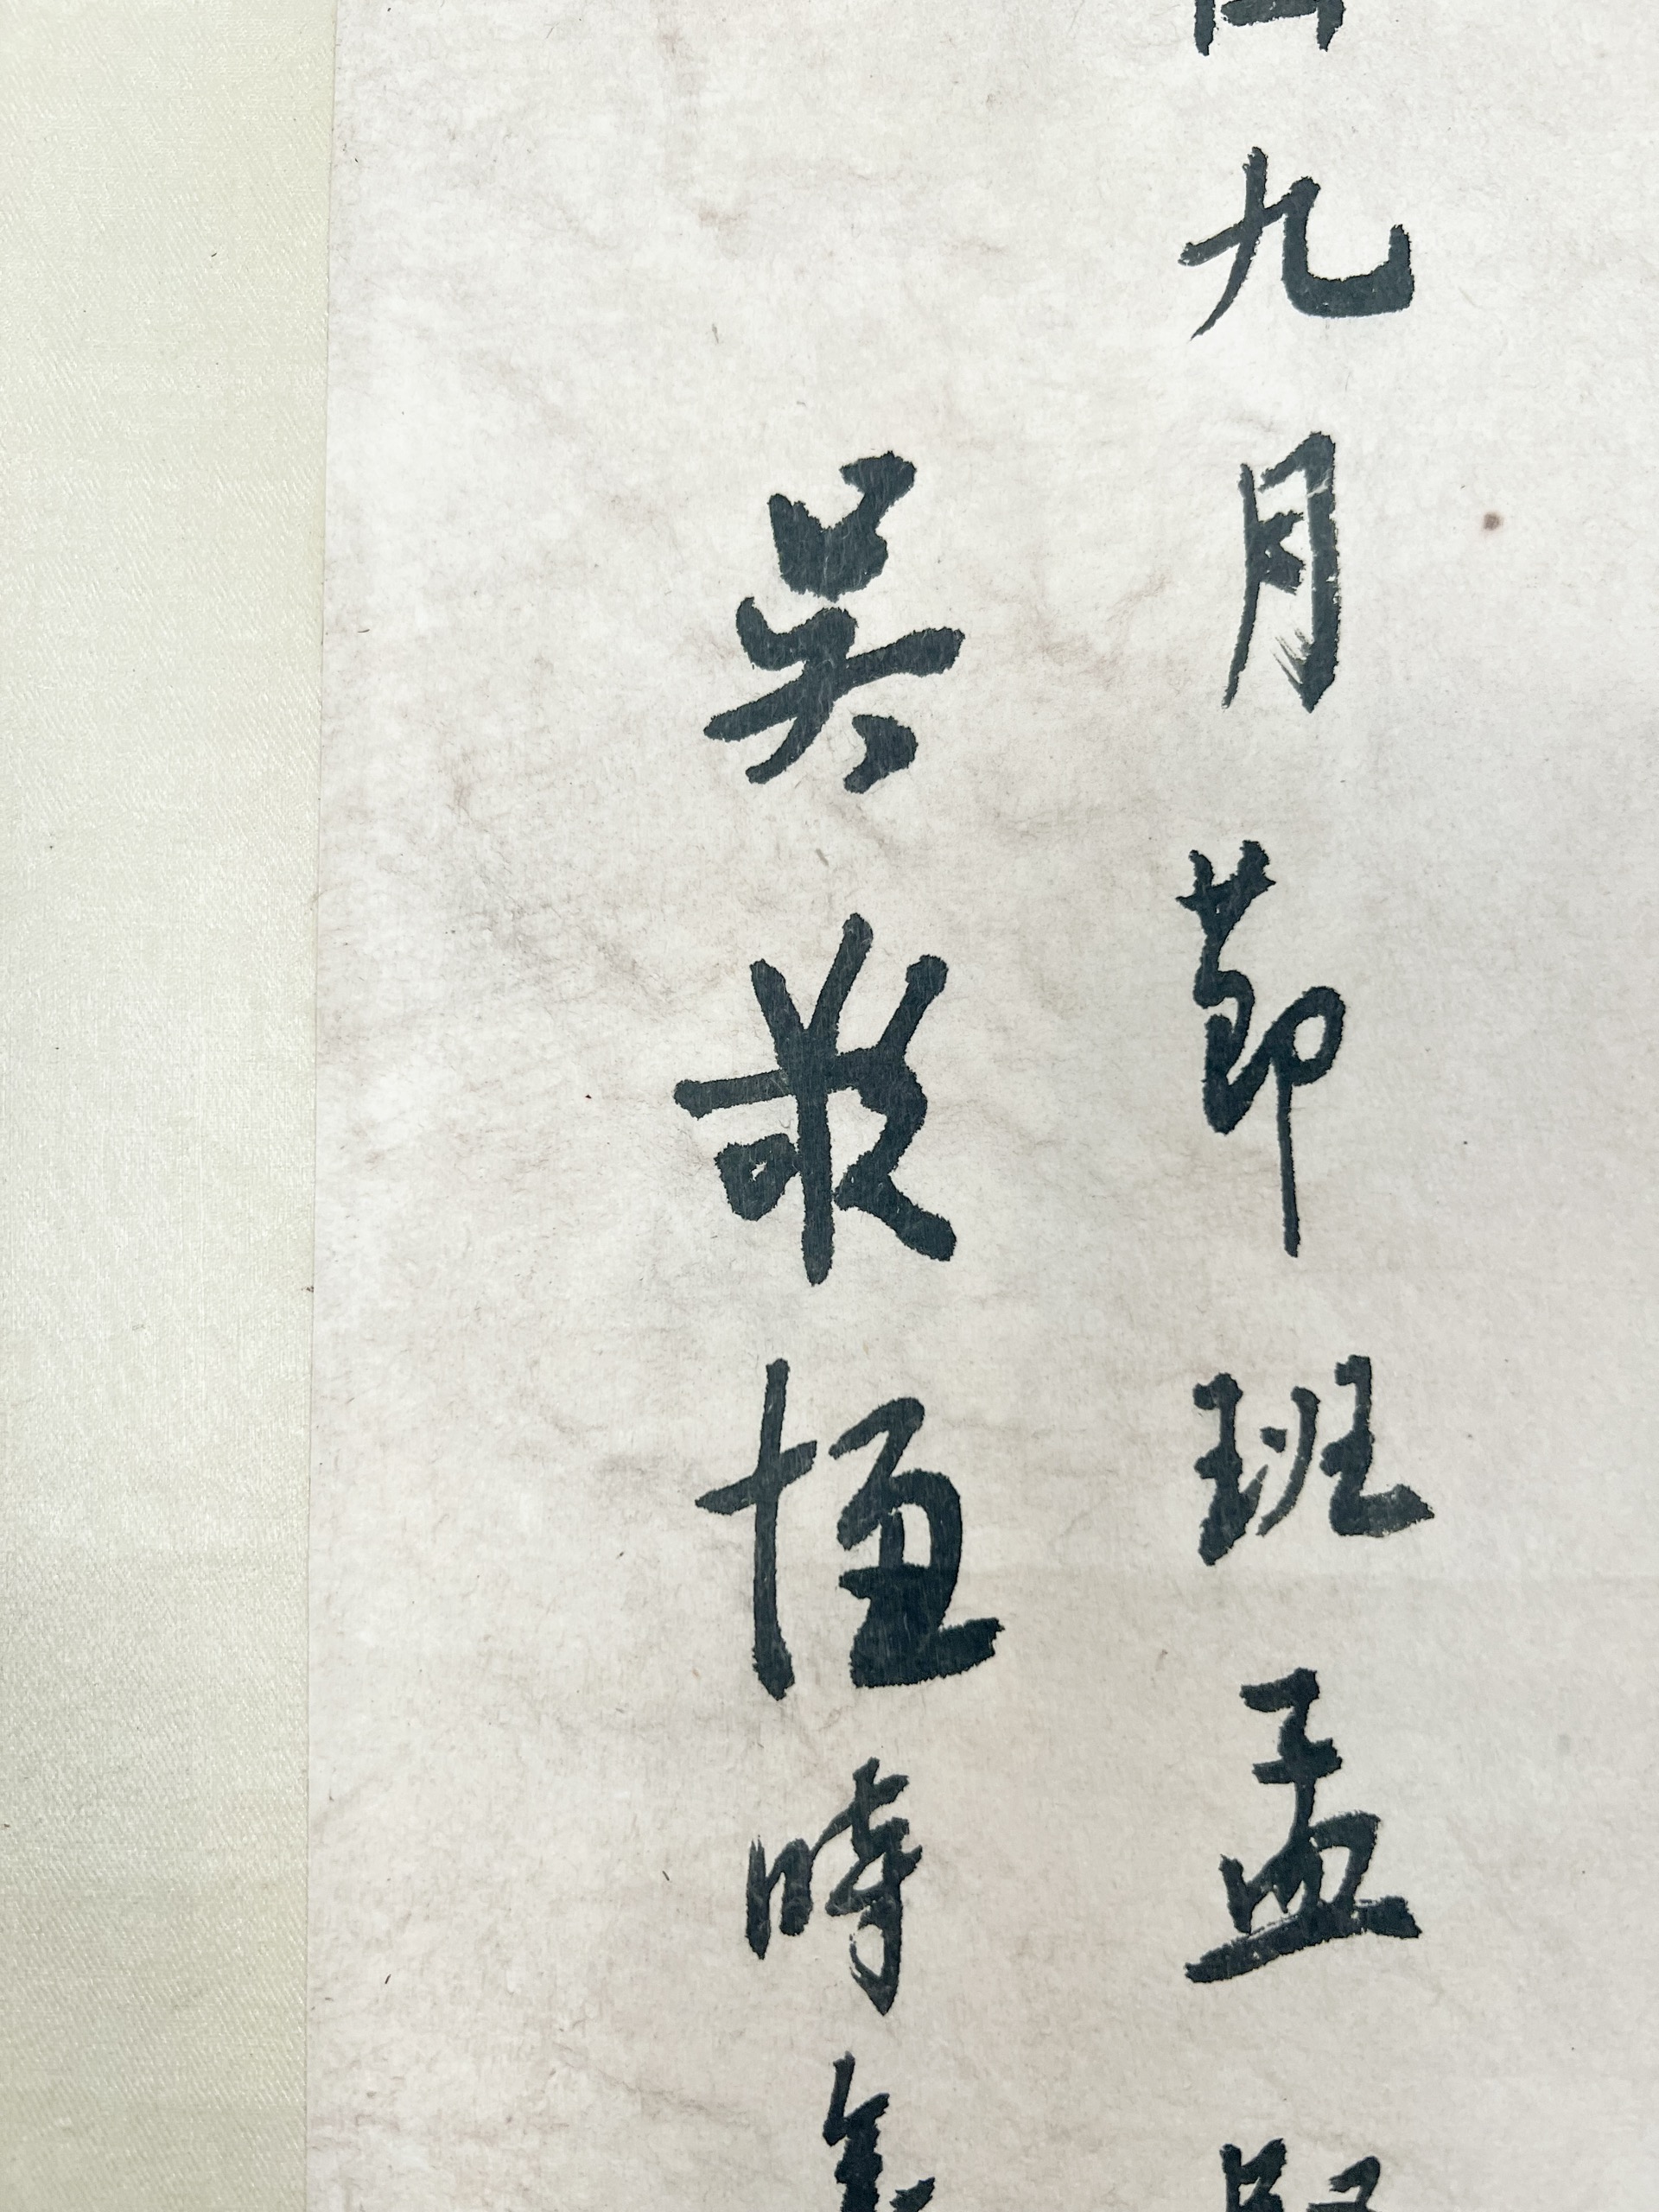 九月節班孟堅
吳敬恆時年